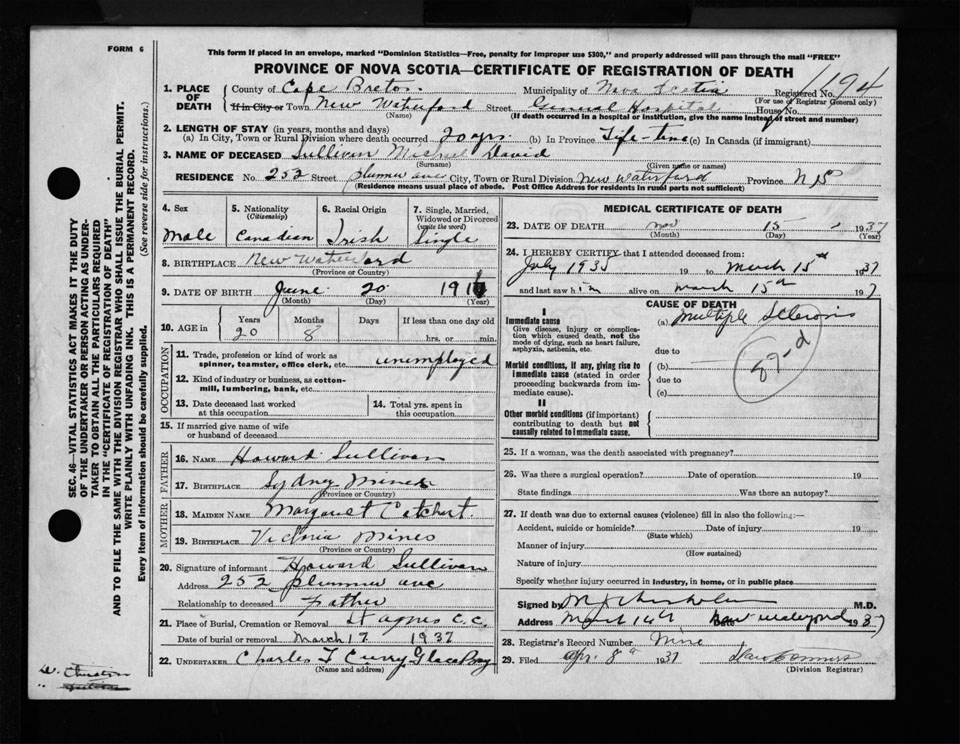 FORM 6
This form if placed in an envelope, marked "Dominion Statistics—Free, penalty for improper use $300," and properly addressed will pass through the mail "FREE"
PROVINCE OF NOVA SCOTIA—CERTIFICATE OF REGISTRATION OF DEATH
1. PLACE OF DEATH
County of Cape Breton
Municipality of Nova Scotia
Registered No. 194
(For use of Registrar General only)
If in City or Town New Waterford Street General Hospital House No.
(Name) (If death occurred in a hospital or institution, give the name instead of street and number)
2. LENGTH OF STAY (in years, months and days)
(a) In City, Town or Rural Division where death occurred 20 yrs. (b) In Province Life-time (c) In Canada (if immigrant)
3. NAME OF DECEASED Sullivan Michael David
(Surname) (Given name or names)
RESIDENCE No. 252 Street Plummer ave City, Town or Rural Division New Waterford Province N S
(Residence means usual place of abode. Post Office Address for residents in rural parts not sufficient)
4. Sex
Male
5. Nationality (Citizenship)
Canadian
6. Racial Origin
Irish
7. Single, Married, Widowed or Divorced (write the word)
Single
8. BIRTHPLACE New Waterford
(Province or Country)
9. DATE OF BIRTH June 20 1916
(Month) (Day) (Year)
10. AGE in
Years Months Days If less than one day old
20 8 hrs. or min.
OCCUPATION
11. Trade, profession or kind of work as spinner, teamster, office clerk, etc. unemployed
12. Kind of industry or business, as cotton-mill, lumbering, bank, etc.
13. Date deceased last worked at this occupation
14. Total yrs. spent in this occupation
15. If married give name of wife or husband of deceased
FATHER
16. NAME Howard Sullivan
17. BIRTHPLACE Sydney Mines
(Province or Country)
MOTHER
18. MAIDEN NAME Margaret
19. BIRTHPLACE Victoria Mines
(Province or Country)
20. Signature of informant Howard Sullivan
Address 252 Plummer ave
Relationship to deceased Father
21. Place of Burial, Cremation or Removal St agnes C.C.
Date of burial or removal March 17 1937
22. UNDERTAKER Charles T Curry Glace Bay
(Name and address)
MEDICAL CERTIFICATE OF DEATH
23. DATE OF DEATH 15 1937
(Month) (Day) (Year)
24. I HEREBY CERTIFY that I attended deceased from:
July 1935 19 to March 15th 1937
and last saw him alive on March 15th 1937
CAUSE OF DEATH
I
Immediate cause
Give disease, injury or complication which caused death, not the mode of dying, such as heart failure, asphyxia, asthenia, etc.
(a) Multiple Sclerosis
due to
Morbid conditions, if any, giving rise to immediate cause (stated in order proceeding backwards from immediate cause).
(b)
due to
(c)
87-d
II
Other morbid conditions (if important) contributing to death but not causally related to immediate cause.
25. If a woman, was the death associated with pregnancy?
26. Was there a surgical operation? Date of operation 19
State findings Was there an autopsy?
27. If death was due to external causes (violence) fill in also the following:—
Accident, suicide or homicide? Date of injury 19
(State which)
Manner of injury
(How sustained)
Nature of injury
Specify whether injury occurred in industry, in home, or in public place
Signed by M.D.
Address March 1937
28. Registrar's Record Number Nine
29. Filed Apr. 8th 1937
(Division Registrar)
SEC. 46—VITAL STATISTICS ACT MAKES IT THE DUTY
OF THE UNDERTAKER OR PERSON ACTING AS UNDER-
TAKER TO OBTAIN ALL THE PARTICULARS REQUIRED
IN THE "CERTIFICATE OF REGISTRATION OF DEATH"
AND TO FILE THE SAME WITH THE DIVISION REGISTRAR WHO SHALL ISSUE THE BURIAL PERMIT.
WRITE PLAINLY WITH UNFADING INK. THIS IS A PERMANENT RECORD.
Every item of information should be carefully supplied. (See reverse side for instructions.)